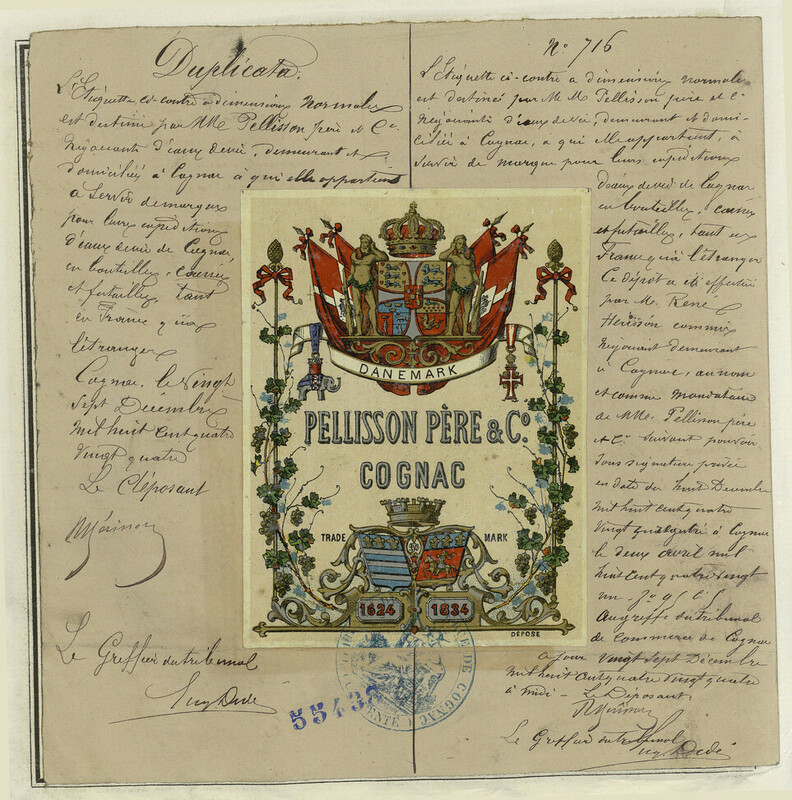 Duplicata.
L'Étiquette ci-contre à dimensions normales
est destinée par MM. Pellisson père et Cie
Négociants d'eaux devie, demeurant et
domiciliés à Cognac à qui elle appartient
à servir de marque
pour leurs expéditions
d'eaux devie de Cognac,
en bouteilles, caisses
et futailles, tant
en France qu'à
l'étranger
Cognac, le vingt
sept Décembre
mil huit cent quatre
vingt quatre
Le Déposant
RHérisson
Le Greffier du tribunal
Eug Dedé
No 716
L'Étiquette ci-contre à dimensions normales
est destinée par MM. Pellisson père et Cie
Négociants d'eaux devie, demeurant et domi-
ciliés à Cognac, à qui elle appartient, à
servir de marque pour leurs expéditions
d'eaux devie de Cognac
en bouteilles, caisses
et futailles, tant en
France qu'à l'étranger
Ce dépôt a été effectué
par M. René
Hérisson commis
négociant demeurant
à Cognac, au nom
et comme mandataire
de MM. Pellisson père
et Cie suivant pouvoir
sous signature privée
en date du huit Décembre
mil huit cent quatre
vingt enregistré à Cognac
le deux avril mil
huit cent quatre vingt
un
au greffe du tribunal
de Commerce de Cognac
ce jour vingt sept Décembre
mil huit cent quatre vingt quatre
à midi - Le Déposant
RHérisson
Le Greffier du tribunal
Eug Dedé
DANEMARK
PELLISSON PÈRE & Co.
COGNAC
TRADE MARK
1624 1834
DÉPOSÉ
DE COGNAC